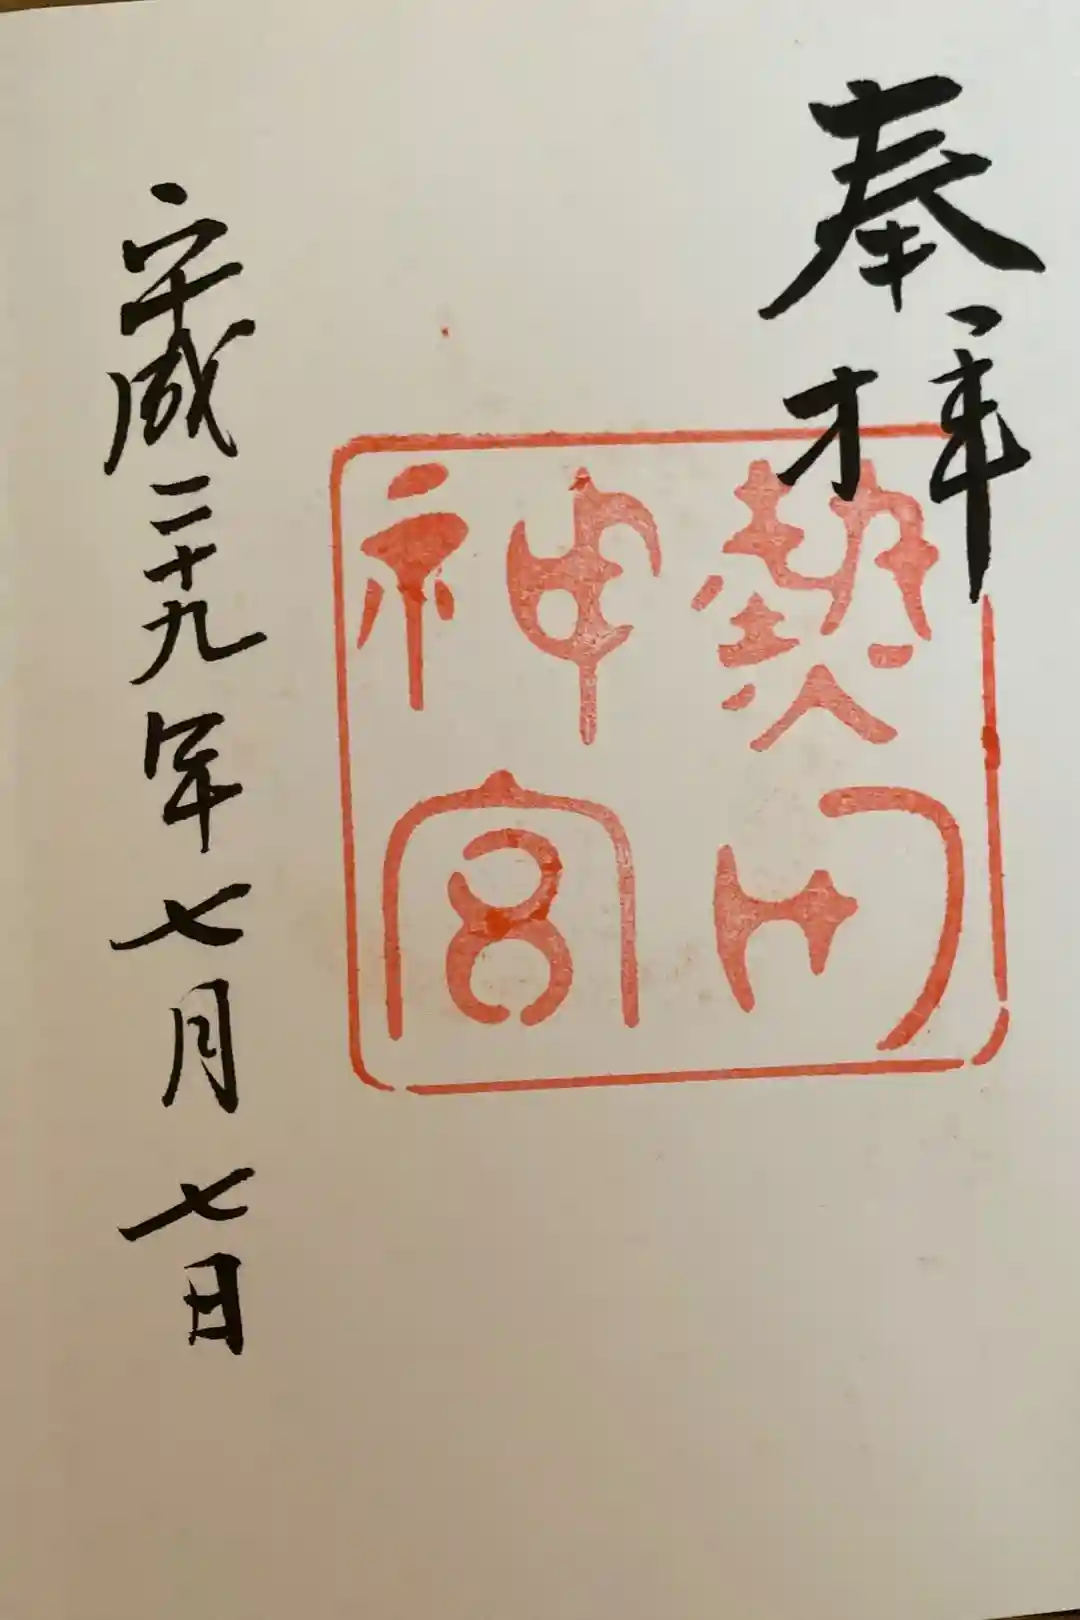 奉拝
熱田
神宮
平成二十九年七月七日